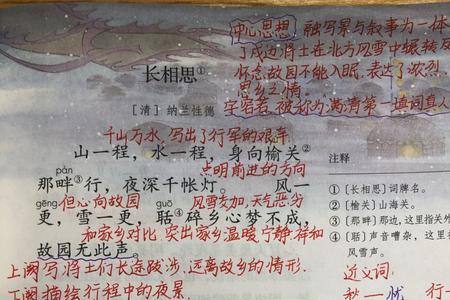 中心思想 融写景与叙事为一体
了戍边将士在北方风雪中辗转反
怀念故园不能入眠.表达了浓烈
思乡之情.
字容若,被称为满清第一填词真人
长相思①
[清]纳兰性德
千山万水,写出了行军的艰辛
山一程,水一程,身向榆关②
pàn 点明前进的方向
那畔③行,夜深千帐灯。 风一
gēng 但心向故园 guō 风雪交加,天气恶劣
更,雪一更,聒④碎乡心梦不成,
和家乡对比 突出家乡温暖,宁静.祥和
故园无此声。
上阕写:将士们长途跋涉.远离故乡的情形.
下阕描绘行程中的夜景.
注释
①〔长相思〕词牌名。
②〔榆关〕山海关。
③〔那畔〕那边,这里指关外
④〔聒〕声音嘈杂,这里
风雪声。
近义词: